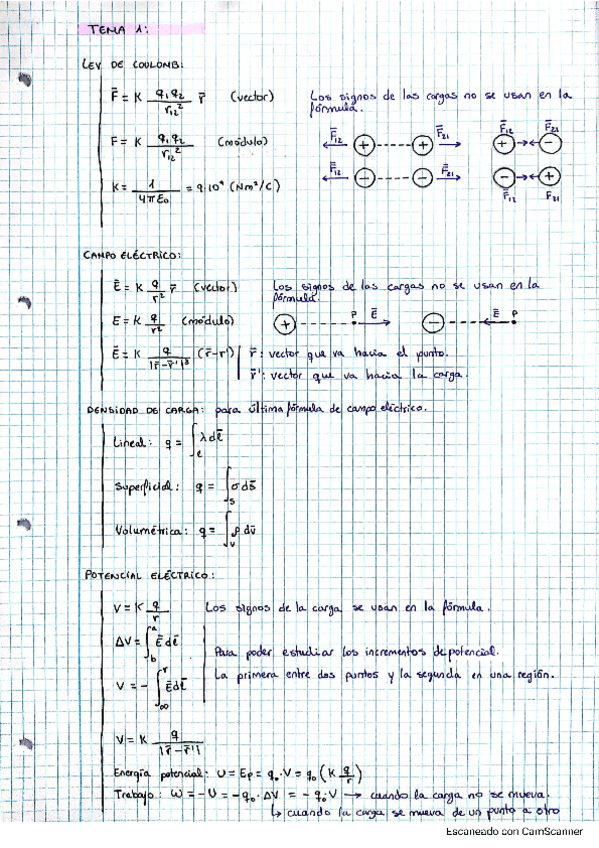 TEMA 1:
LEY DE COULOMB:
F̄ = K q₁q₂/r₁₂² r̄ (vector) Los signos de las cargas no se usan en la
fórmula.
F = K q₁q₂/r₁₂² (módulo)
F̄₁₂ + + F̄₂₁ F̄₁₂ + - F̄₂₁
F̄₁₂ - - F̄₂₁ - + F̄₁₂ F₂₁
K = 1/4πε₀ = 9·10⁹ (Nm²/C)
CAMPO ELÉCTRICO:
Ē = K q/r² r̄ (vector) Los signos de las cargas no se usan en la
fórmula.
E = K q/r² (módulo) + P Ē - Ē P
Ē = K q/|r̄-r̄'|³ (r̄-r') r̄: vector que va hacia el punto.
r̄': vector que va hacia la carga.
DENSIDAD DE CARGA: para última fórmula de campo eléctrico.
Lineal: q = ∫ₑ λdē
Superficial: q = ∫ₛ σds̄
Volumétrica: q = ∫ᵥ ρdv̄
POTENCIAL ELÉCTRICO:
V = K q/r Los signos de la carga se usan en la fórmula.
ΔV = ∫_b^a Ēdē
Para poder estudiar los incrementos de potencial.
La primera entre dos puntos y la segunda en una región.
V = - ∫_∞^r Ēdē
V = K q/|r̄-r̄'|
Energía potencial: U = Ep = q₀·V = q₀ (K q/r)
Trabajo: W = -U = -q₀·ΔV = -q₀·V → cuando la carga no se mueva.
↳ cuando la carga se mueva de un punto a otro
Escaneado con CamScanner